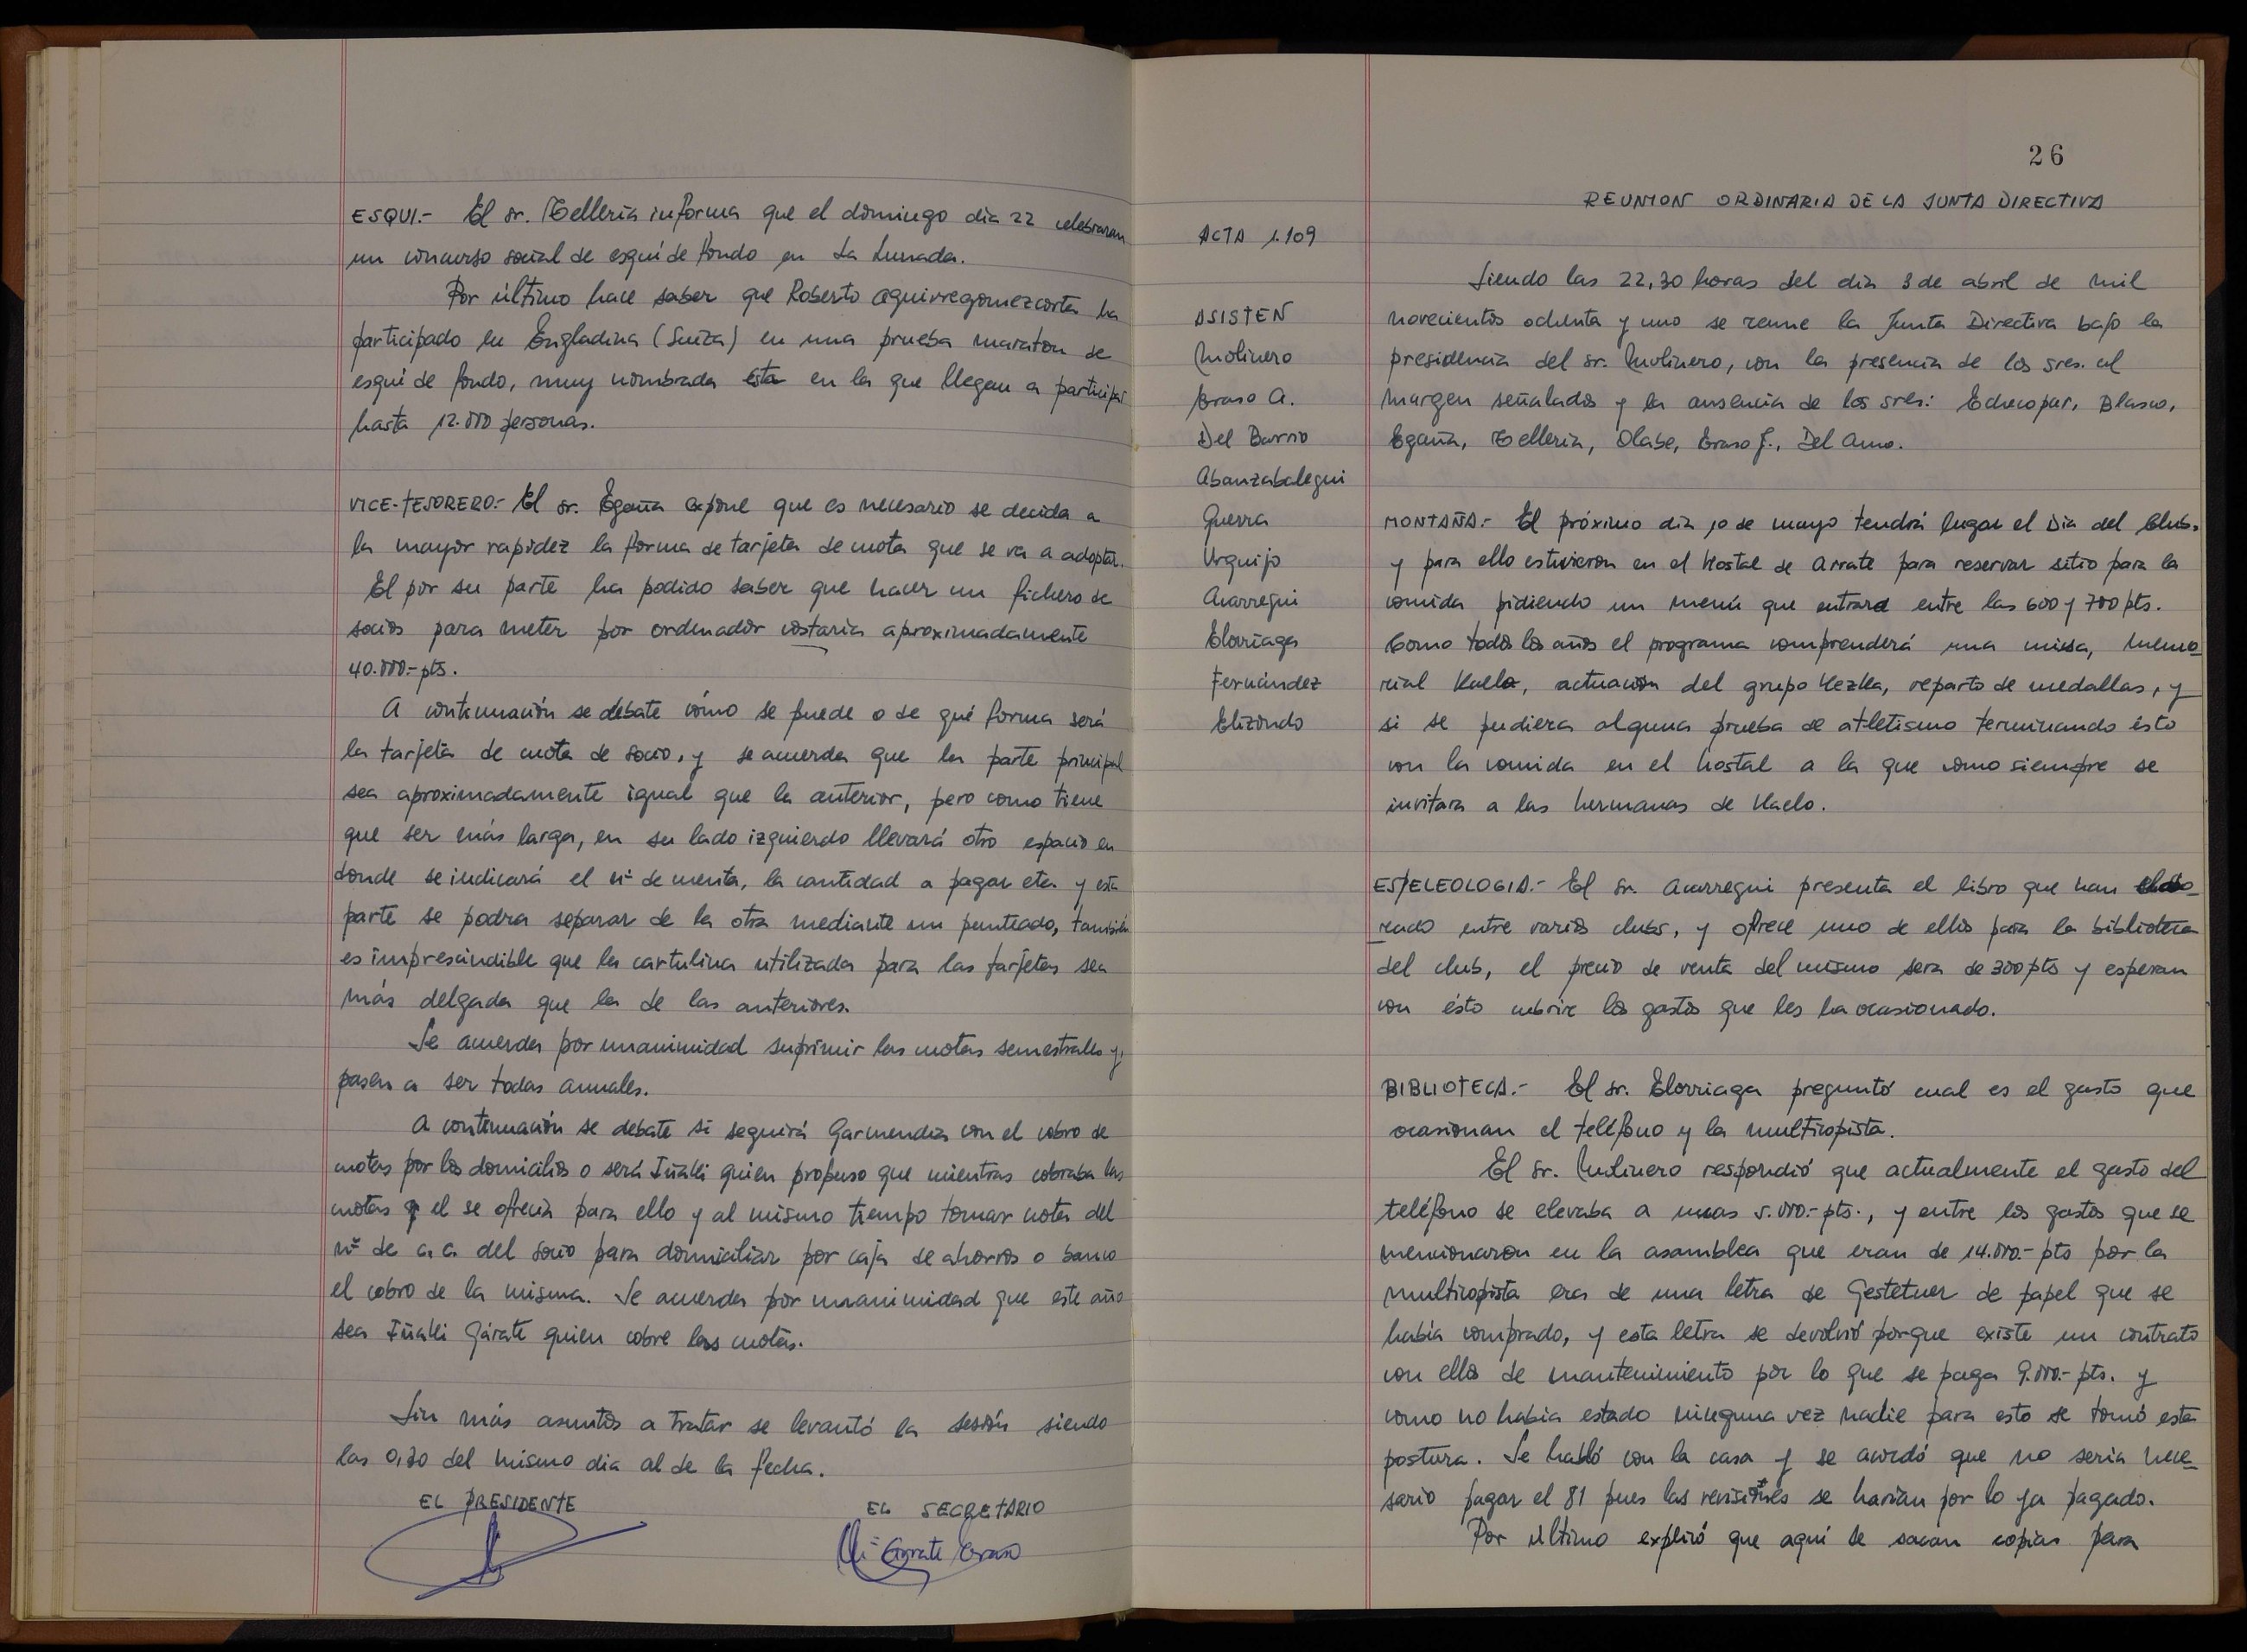 ESQUI.- El sr. Telleria informa que el domingo dia 22 celebraran
un concurso social de esquí de fondo en La Lunada.
Por último hace saber que Roberto Aguirregomezcorta ha
participado en Engladina (Suiza) en una prueba maraton de
esquí de fondo, muy nombrada esta en la que llegan a participar
hasta 12.000 personas.
VICE-TESORERO.- El sr. Egaña expone que es necesario se decida a
la mayor rapidez la forma de tarjeta de cuota que se va a adoptar.
El por su parte ha podido saber que hacer un fichero de
socios para meter por ordenador costaria aproximadamente
40.000.- pts.
A continuación se debate cómo se puede o de qué forma será
la tarjeta de cuota de socio, y se acuerda que la parte principal
sea aproximadamente igual que la anterior, pero como tiene
que ser más larga, en su lado izquierdo llevará otro espacio en
donde se indicará el nº de cuenta, la cantidad a pagar etc. y esta
parte se podra separar de la otra mediante un punteado, también
es imprescindible que la cartulina utilizada para las tarjetas sea
más delgada que la de las anteriores.
Se acuerda por unanimidad suprimir las cuotas semestrales y
pasen a ser todas anuales.
A continuación se debate si seguirá Garmendia con el cobro de
cuotas por los domicilios o será Iñakli quien propuso que mientras cobraba las
cuotas el se ofrecia para ello y al mismo tiempo tomar nota del
nº de c.c. del socio para domiciliar por caja de ahorros o banco
el cobro de la misma. Se acuerda por unanimidad que este año
sea Iñakli Gárate quien cobre las cuotas.
Sin más asuntos a tratar se levantó la sesión siendo
las 0,30 del mismo dia al de la fecha.
EL PRESIDENTE EL SECRETARIO
Gárate Eraso
26
REUNION ORDINARIA DE LA JUNTA DIRECTIVA
ACTA 1.109
Siendo las 22,30 horas del dia 3 de abril de mil
novecientos ochenta y uno se reune la Junta Directiva bajo la
presidencia del sr. Molinero, con la presencia de los sres. al
margen señalados y la ausencia de los sres: Echeopar, Blasco,
Egaña, Telleria, Olabe, Eraso J., Del Amo.
ASISTEN
Molinero
Eraso A.
Del Barrio
Abanzabalegui
Guerra
Urquijo
Azarregui
Elorriaga
Fernández
Elizondo
MONTAÑA.- El próximo dia 10 de mayo tendrá lugar el Dia del Club.
y para ello estuvieron en el Hostal de Arrate para reservar sitio para la
comida pidiendo un menú que entrara entre las 600 y 700 pts.
Como todos los años el programa comprenderá una misa, memo-
rial Kaelo, actuación del grupo Kezka, reparto de medallas, y
si se pudiera alguna prueba de atletismo terminando ésto
con la comida en el hostal a la que como siempre se
invitara a las hermanas de Kaelo.
ESPELEOLOGIA.- El sr. Azarregui presenta el libro que han elabo-
rado entre varios clubs, y ofrece uno de ellos para la biblioteca
del club, el precio de venta del mismo sera de 300 pts y esperan
con ésto cubrir los gastos que les ha ocasionado.
BIBLIOTECA.- El sr. Elorriaga preguntó cual es el gasto que
ocasionan el teléfono y la multicopista.
El sr. Molinero respondió que actualmente el gasto del
teléfono se elevaba a unas 5.000.- pts., y entre los gastos que se
mencionaron en la asamblea que eran de 14.000.- pts por la
multicopista era de una letra de Gestetner de papel que se
habia comprado, y esta letra se devolvió porque existe un contrato
con ellos de mantenimiento por lo que se paga 9.000.- pts. y
como no habia estado ninguna vez nadie para esto se tomó esta
postura. Se habló con la casa y se acordó que no seria nece-
sario pagar el 81 pues las revisiones se harian por lo ya pagado.
Por último explicó que aquí se sacan copias para